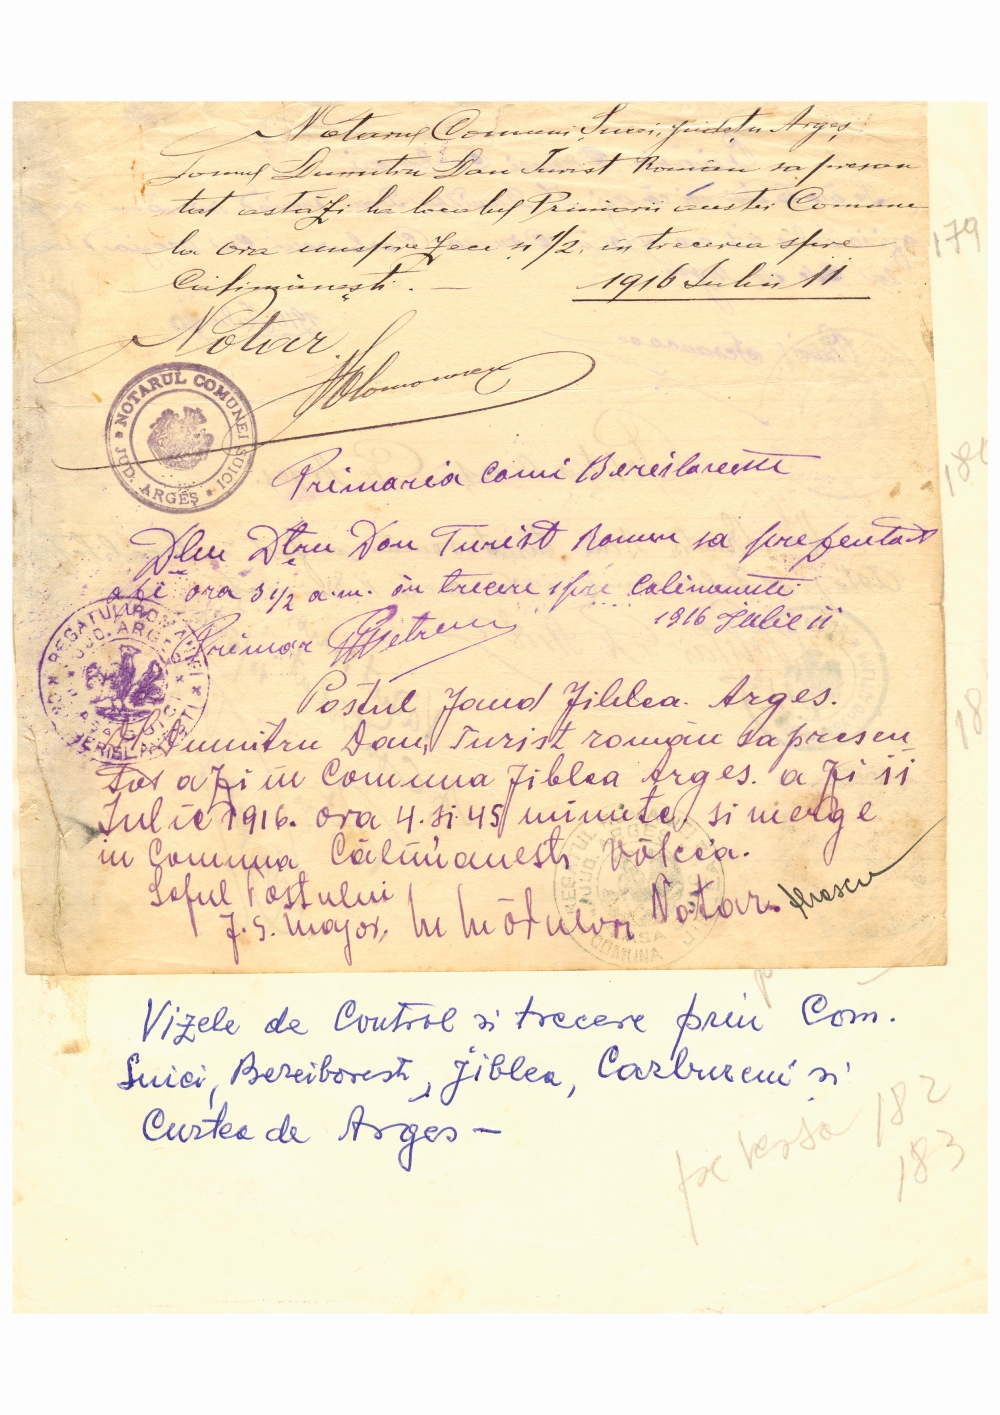 Notarul Comunei Suici, județu Argeș
Domnul Dumitru Dan Turist Român sa presen
tat astăzi la localul Primării acestei Comune
la ora unsprezece și 1/2, in trecerea spre
Călimănești. — 1916 Iuliu 11
Notar
NOTARUL COMUNEI SUICI
JUD. ARGEȘ
Primaria Comi Bereslovesti
Dlui Dtru Dan Turist Roman sa prezentat
azi ora 3 1/2 a.m. în trecere spre Calimanesti
Primar Petrescu 1916 Iulie 11
REGATUL ROMANIEI
JUD. ARGEȘ
Postul Jand Jiblea. Arges.
Dumitru Dan, Turist român sa presen
tat azi in Comuna Jiblea Arges. azi 11
Iulie 1916. ora 4. si 45 minute, si merge
in Comuna Călimanesti Vâlcea.
Șeful Postului
J. S. Major, Notar.
COMUNA
Vizele de Control si trecere prin Com.
Suici, Bereiboresti, Jiblea, Carbureni si
Curtea de Arges —
179
180
18
pe versa 182
183